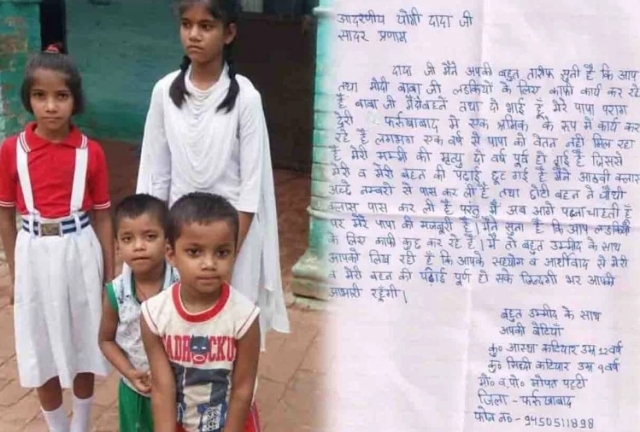 आदरणीय योगी दादा जी
सादर प्रणाम
दादा जी मैंने आपकी बहुत तारीफ सुनी है कि आप
तथा मोदी बाबा जी लडकियों के लिए काफी कार्य कर रहे
है। बाबा जी मैं दो बहनें तथा दो भाई हूँ मेरे पापा पराग
डेरी फर्रुखाबाद में एक श्रमिक के रूप में कार्य कर
रहे है लगभग एक वर्ष से पापा को वेतन नहीं मिल रहा
है, मेरी मम्मी की मृत्यु दो वर्ष पूर्व हो गई है जिससे
मेरी व मेरी बहन की पढाई छूट गई है मैंने आठवीं क्लास
अच्छे नम्बरो से पास कर ली है, तथा छोटी बहन ने चौथी
क्लास पास कर ली है परंतु मैं अब आगे पढना चाहती हूँ
पर मेरे पापा की मजबूरी है। मैंने सुना है कि आप लडकियों
के लिए काफी कुछ कर रहे है। मैं तो बहुत उम्मीद के साथ
आपको लिख रही है कि आपके सहयोग व आर्शीवाद से मेरी
व मेरी बहन की पढ़ाई पूर्ण हो सके जिन्दगी भर आपकी
आभारी रहूँगी।
बहुत उम्मीद के साथ
आपकी बेटियाँ
कु० आस्था कटियार उम्र 12 वर्ष
कु० सिद्धी कटियार उम्र 9 वर्ष
मौ० व पो० भोपत पट्टी
जिला - फर्रुखाबाद
फोन न० - 9450511898